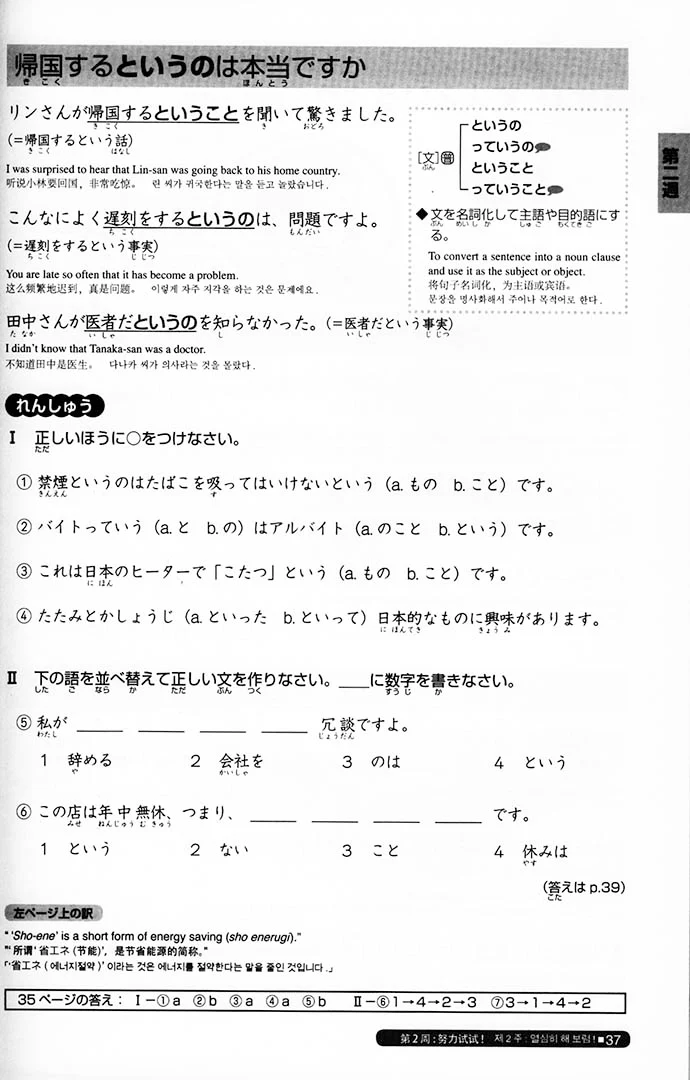 帰国するというのは本当ですか
きこく ほんとう
リンさんが帰国するということを聞いて驚きました。
きこく き おどろ
(=帰国するという話)
きこく はなし
I was surprised to hear that Lin-san was going back to his home country.
听说小林要回国，非常吃惊。 린 씨가 귀국한다는 말을 듣고 놀랐습니다.
こんなによく遅刻をするというのは、問題ですよ。
ちこく もんだい
(=遅刻をするという事実)
ちこく じじつ
You are late so often that it has become a problem.
这么频繁地迟到，真是问题。 이렇게 자주 지각을 하는 것은 문제에요.
田中さんが医者だというのを知らなかった。(=医者だという事実)
たなか いしゃ し いしゃ じじつ
I didn't know that Tanaka-san was a doctor.
不知道田中是医生。 다나카 씨가 의사라는 것을 몰랐다.
[文]普
ぶん
というの
っていうの
ということ
っていうこと
◆文を名詞化して主語や目的語にす
ぶん めいしか しゅご もくてきご
る。
To convert a sentence into a noun clause
and use it as the subject or object.
将句子名词化，为主语或宾语。
문장을 명사화해서 주어나 목적어로 한다.
第二週
れんしゅう
Ⅰ 正しいほうに○をつけなさい。
ただ
① 禁煙というのはたばこを吸ってはいけないという（a. もの b. こと）です。
きんえん す
② バイトっていう（a. と b. の）はアルバイト（a. のこと b. という）です。
③ これは日本のヒーターで「こたつ」という（a. もの b. こと）です。
にほん
④ たたみとかしょうじ（a. といった b. といって）日本的なものに興味があります。
にほんてき きょうみ
Ⅱ 下の語を並べ替えて正しい文を作りなさい。___に数字を書きなさい。
した ご なら か ただ ぶん つく すうじ か
⑤ 私が ____ ____ ____ ____ 冗談ですよ。
わたし じょうだん
1 辞める 2 会社を 3 のは 4 という
や かいしゃ
⑥ この店は年中無休、つまり、 ____ ____ ____ ____ です。
みせ ねんじゅうむきゅう
1 という 2 ない 3 こと 4 休みは
やす
（答えは p.39）
こた
左ページ上の訳
" 'Sho-ene' is a short form of energy saving (sho enerugi)."
"'所谓'省エネ(节能)'，是节省能源的简称。"
「'省エネ (에너지절약)'이라는 것은 에너지를 절약한다는 말을 줄인 것입니다.」
35ページの答え： Ⅰ－①a ②b ③a ④a ⑤b Ⅱ－⑥1→4→2→3 ⑦3→1→4→2
第2周：努力试试！ 제2주：열심히 해 보렴！■37